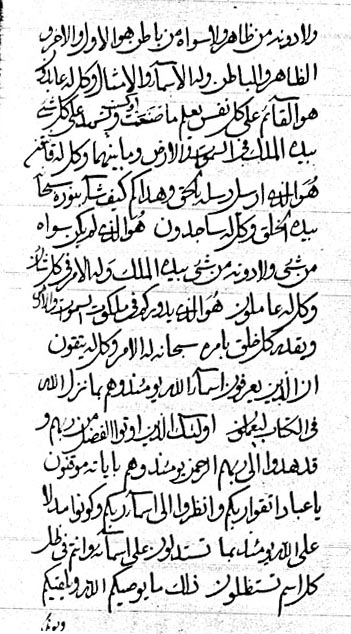 ولا دونه من ظاهر ولا سواه من باطن هو الاول والاخر و
الظاهر والباطن وله الاسمآء والامثال وكل له عابدون
هو القآئم على كل نفس يعلم ما صنعت وكسبت ويشهد على كل شئ
بيده الملك فى السموات والارض وما بينهما وكل له قانتون
هو الذى ارسل رسله بالحق وهداكم كيف شآء بنوره سبحانه
بيده الخلق وكل له ساجدون هو الذى لم يكن سواه
من شئ ولا دونه من شئ بيده الملك وله الامر فى كل شأن
وكل له عاملون هو الذى يدوركم فى ملكوت السموات والارض
ويقدر كل خلق بامره سبحانه له الامر وكل له يتقون
ان الذين يعرفون اسمآء الله يومئذ وهم بما نزل الله
فى الكتاب ليعملون اولئك الذين اوتوا الفضل من ربهم و
قد هدوا الى ربهم الرحمن يومئذ وهم باياته موقنون
يا عباد اتقوا ربكم وانظروا الى اسمآء ربكم وكونوا مدلا
على الله يومئذ بما تستدلون على اسمآئه وانتم فى ظل
كل اسم تستظلون ذلك ما يوصيكم الله ربكم